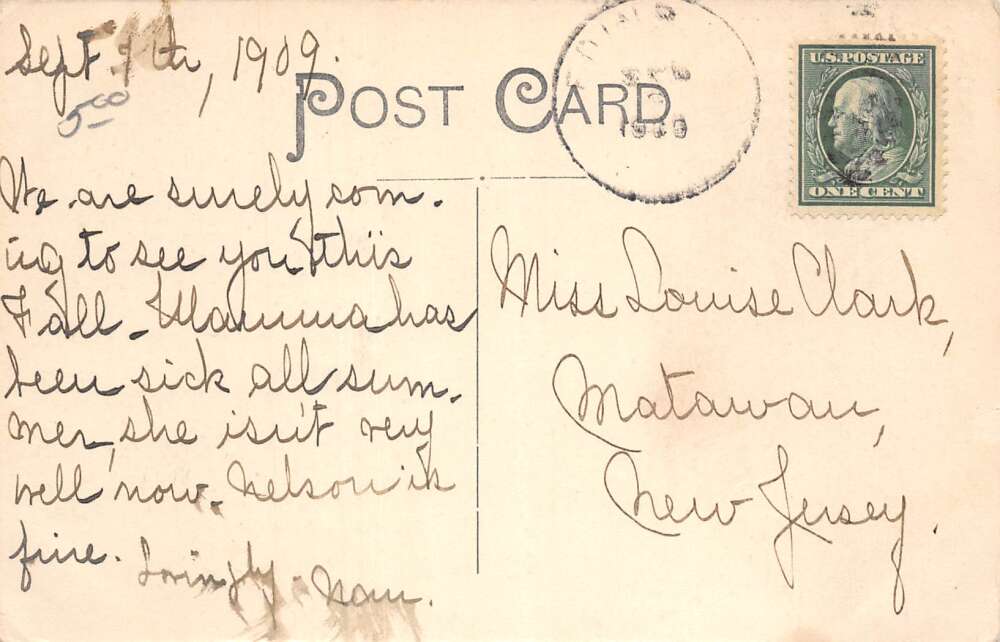 Sept 7th, 1909.
5.00
POST CARD
1909
U.S. POSTAGE
ONE CENT
We are surely com-
ing to see you this
Fall - Mamma has
been sick all sum-
mer, she isn't very
well now. Nelson is
fine.
Lovingly - Nan.
Miss Louise Clark,
Matawan,
New Jersey.